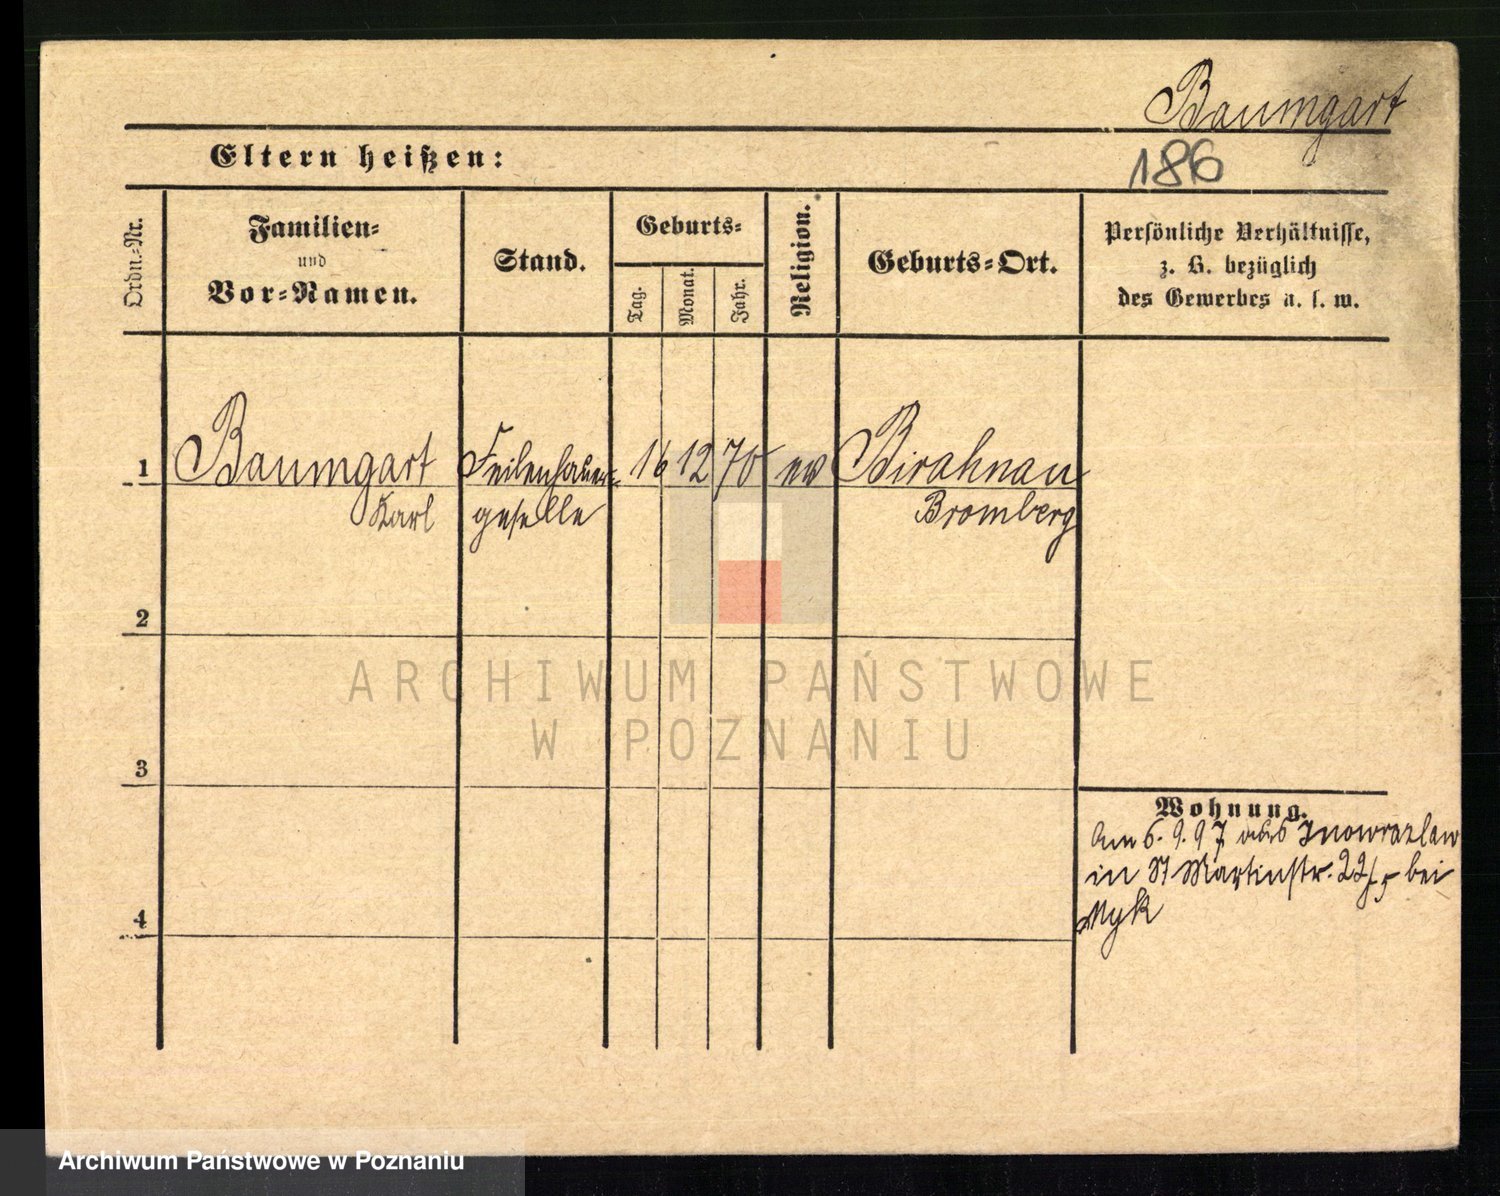 Baumgart
Eltern heißen:
186
Ordn.-Nr.
Familien-
und
Vor-Namen.
Stand.
Geburts-
Tag.
Monat.
Jahr.
Religion.
Geburts-Ort.
Persönliche Verhältnisse,
z. B. bezüglich
des Gewerbes u. s. w.
1 Baumgart Feilenhauer- 16 12 70 ev Birahnau
Karl geselle Bromberg
2
3
4
Wohnung.
Am 6. 9. 97 aus Inowrazlaw
in St Martinstr. 22/ bei
Myk
ARCHIWUM PAŃSTWOWE
W POZNANIU
Archiwum Państwowe w Poznaniu